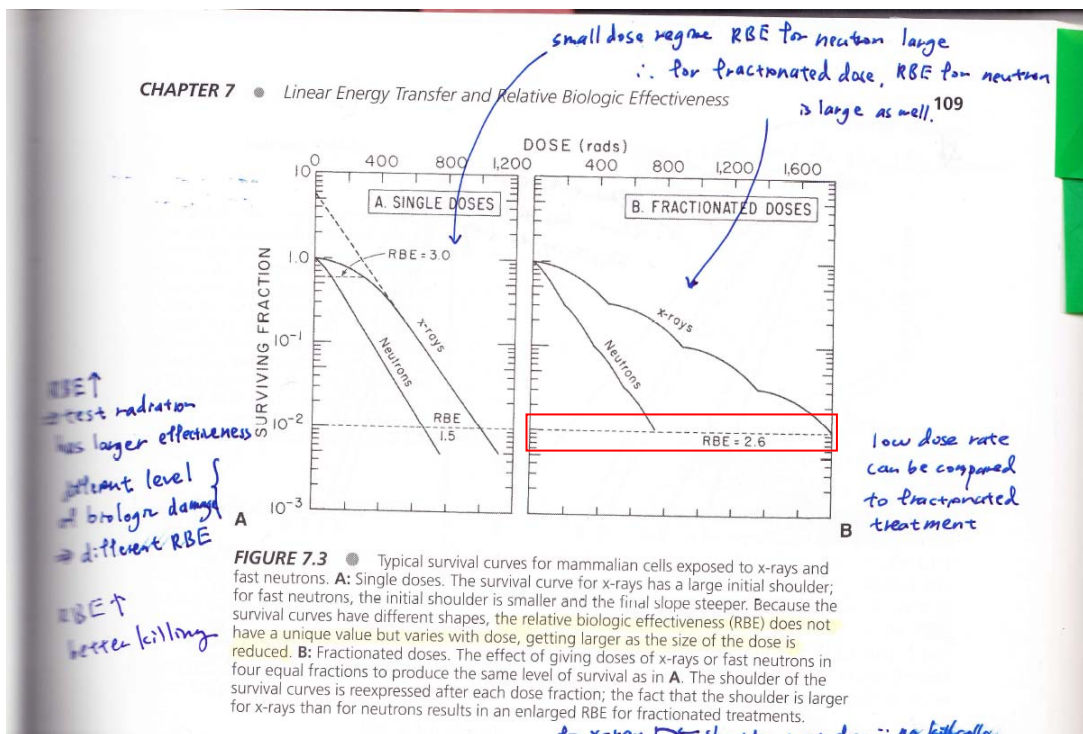 small dose regime RBE for neutron large
∴ for fractionated dose, RBE for neutron
is large as well.
CHAPTER 7 ● Linear Energy Transfer and Relative Biologic Effectiveness 109
DOSE (rads)
0 400 800 1,200 400 800 1,200 1,600
10
A. SINGLE DOSES
B. FRACTIONATED DOSES
1.0
RBE = 3.0
10-1
10-2
10-3
SURVIVING FRACTION
x-rays
Neutrons
RBE
1.5
x-rays
Neutrons
RBE = 2.6
A
B
RBE↑
test radiation
has larger effectiveness
different level
of biologic damage
⇒ different RBE
RBE↑
better killing
low dose rate
can be compared
to fractionated
treatment
FIGURE 7.3 ● Typical survival curves for mammalian cells exposed to x-rays and
fast neutrons. A: Single doses. The survival curve for x-rays has a large initial shoulder;
for fast neutrons, the initial shoulder is smaller and the final slope steeper. Because the
survival curves have different shapes, the relative biologic effectiveness (RBE) does not
have a unique value but varies with dose, getting larger as the size of the dose is
reduced. B: Fractionated doses. The effect of giving doses of x-rays or fast neutrons in
four equal fractions to produce the same level of survival as in A. The shoulder of the
survival curves is reexpressed after each dose fraction; the fact that the shoulder is larger
for x-rays than for neutrons results in an enlarged RBE for fractionated treatments.